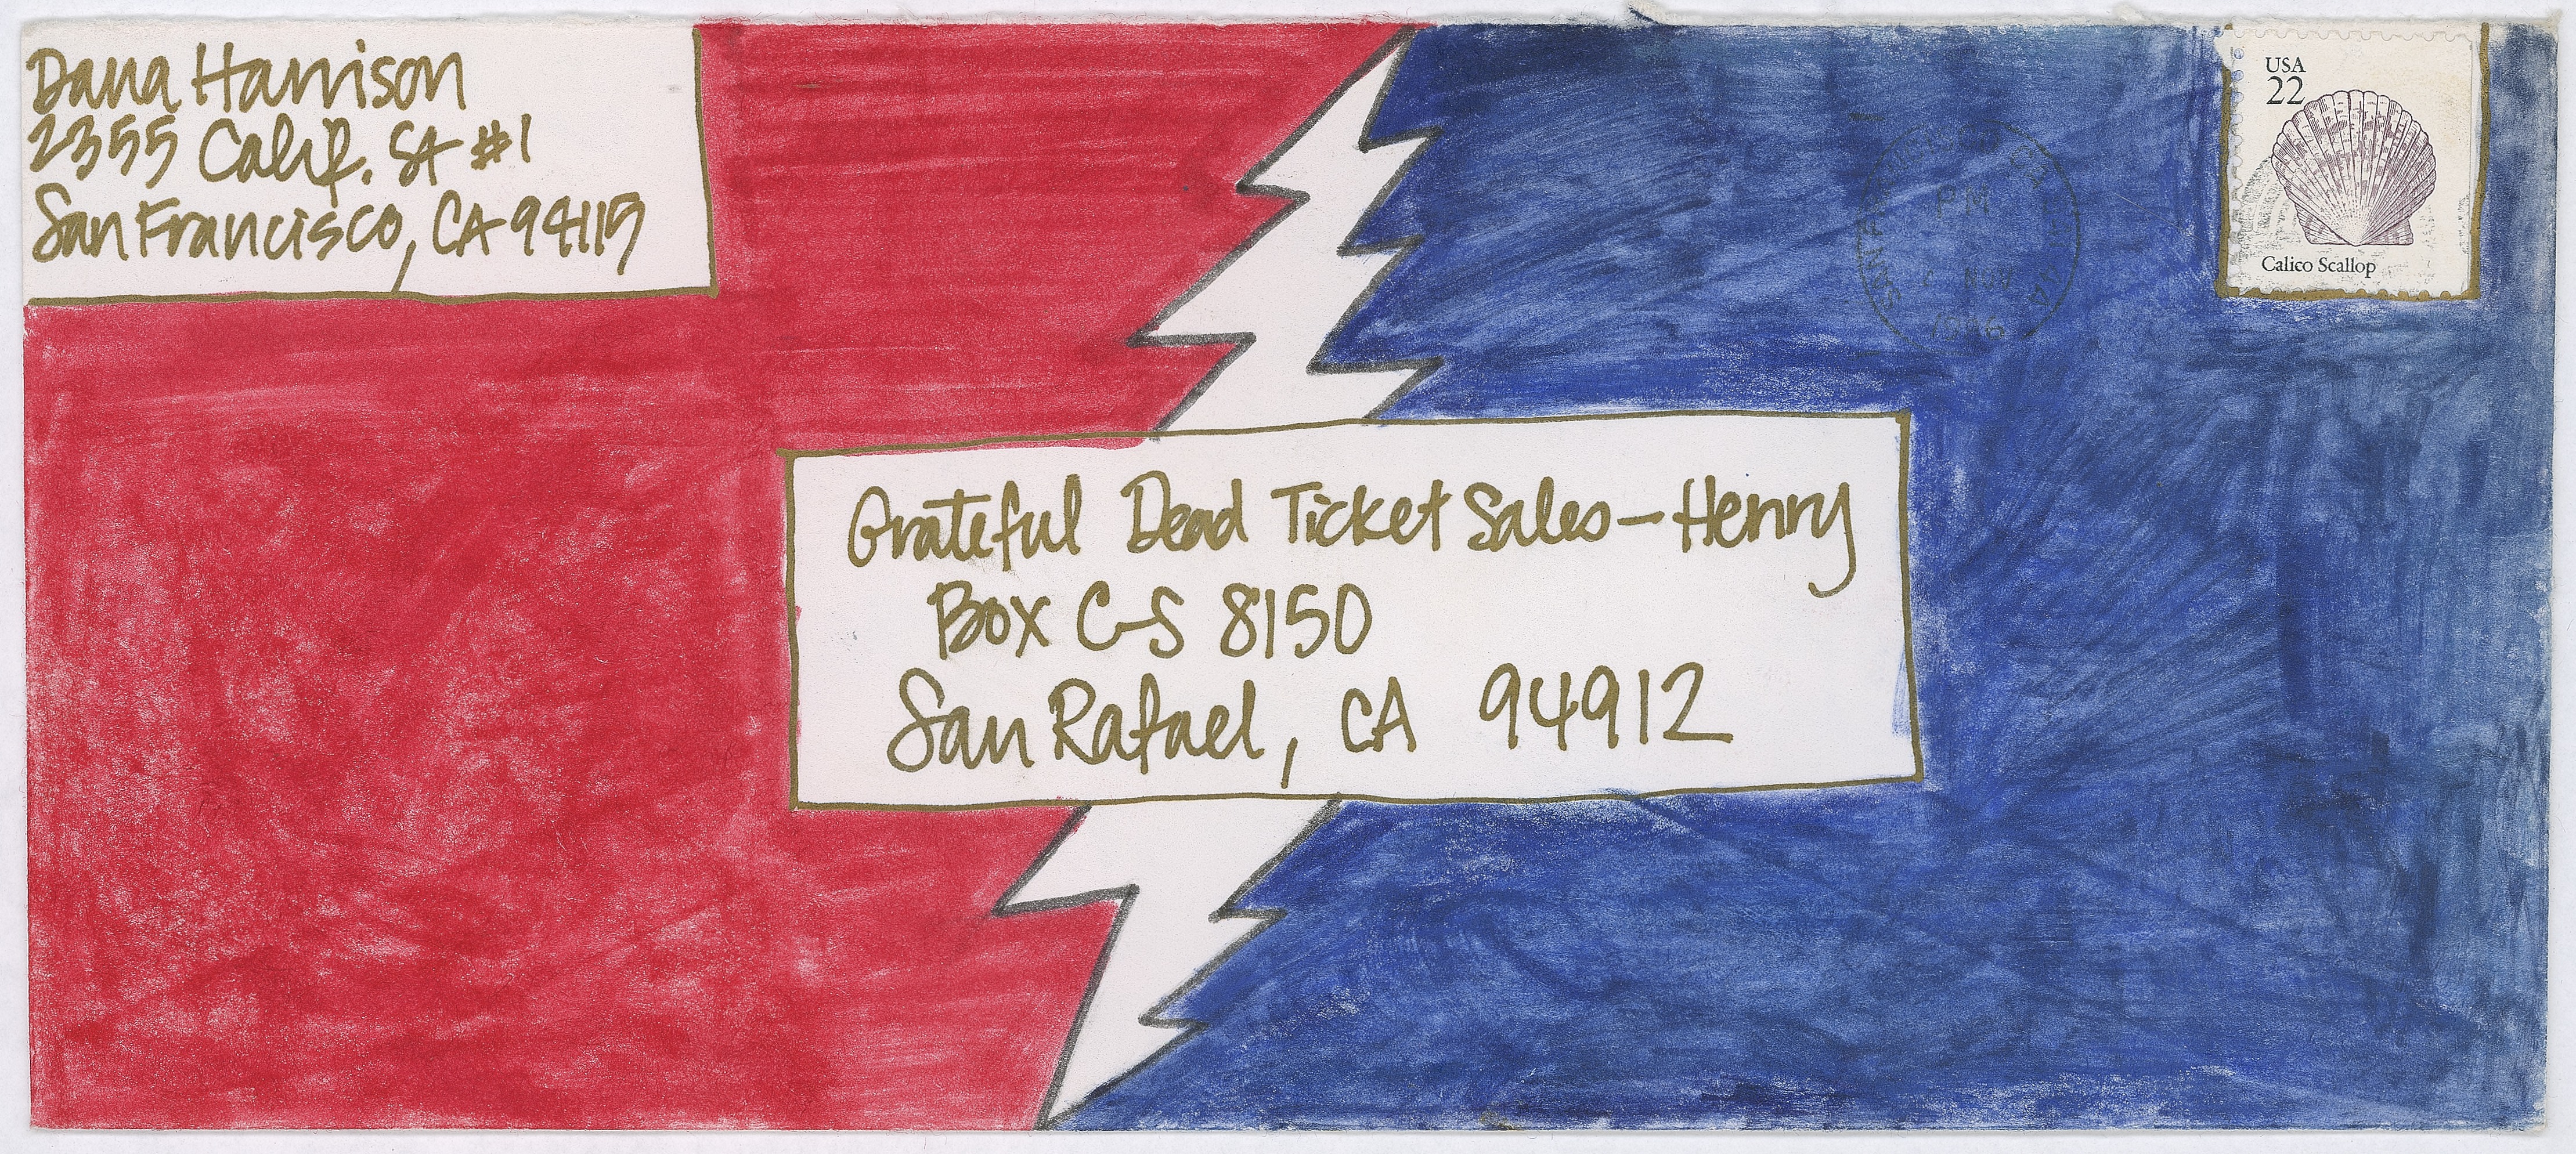 Dana Harrison
2355 Calif. St #1
San Francisco, CA 94115
USA
22
Calico Scallop
PM
Grateful Dead Ticket Sales - Henry
Box C-S 8150
San Rafael, CA 94912